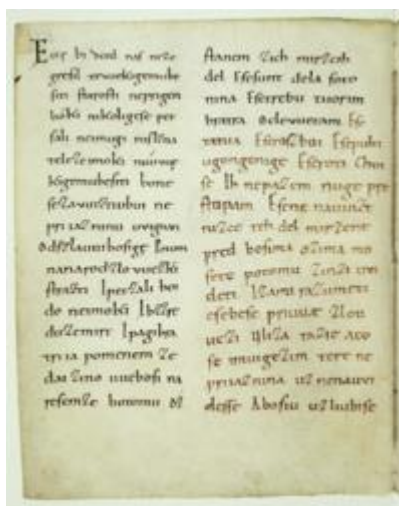 Ecce bi detd naſ neze
greſil tevuekigemube
ſiti ſtaroſti neprigem
lióki nikoligeſe pet
ſali neimugi niſlzna
teleſe imoki nuúvue
kigemubeſiti bone
ſezavuiztinebui ne
priiaznina uvignan
Odſzlauuiboſigę Ipom
nanarodzlovuezki
ſtraſti Ipetzali boi
do neimoki Ibzzre
duzemirt Ipagibra
triia pomenem ze
dai zino uueboſi na
reſemze botomu Oz
ſtanem zich mirzcih
del Eſeſunt dela ſoto
nina Eſetrebu tuorim
bratra Oclevuetam Eſe
tatua Eſeraſboi Eſepulti
ugongenige Eſeroti Choi
ſe Ih nepazem nuge pre
ſtopam Eſene nauuizt
nizce teh del mirzene
pred boſima ozima mo
ſete potomu zinzi uvi
deti Izami razumeti
eſebeſe priuuæ zlou
uezi ULiza tazie aco
ſe imuigezim tere ne
priiaznina uznenauvi
deſſe Aboſiu uzliubiſe